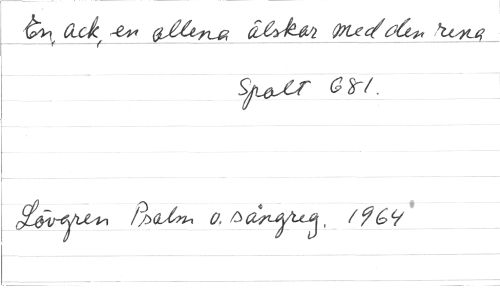 En, ack, en allena älskar med den rena
Spalt 681.
Lövgren Psalm o. sångreg. 1964